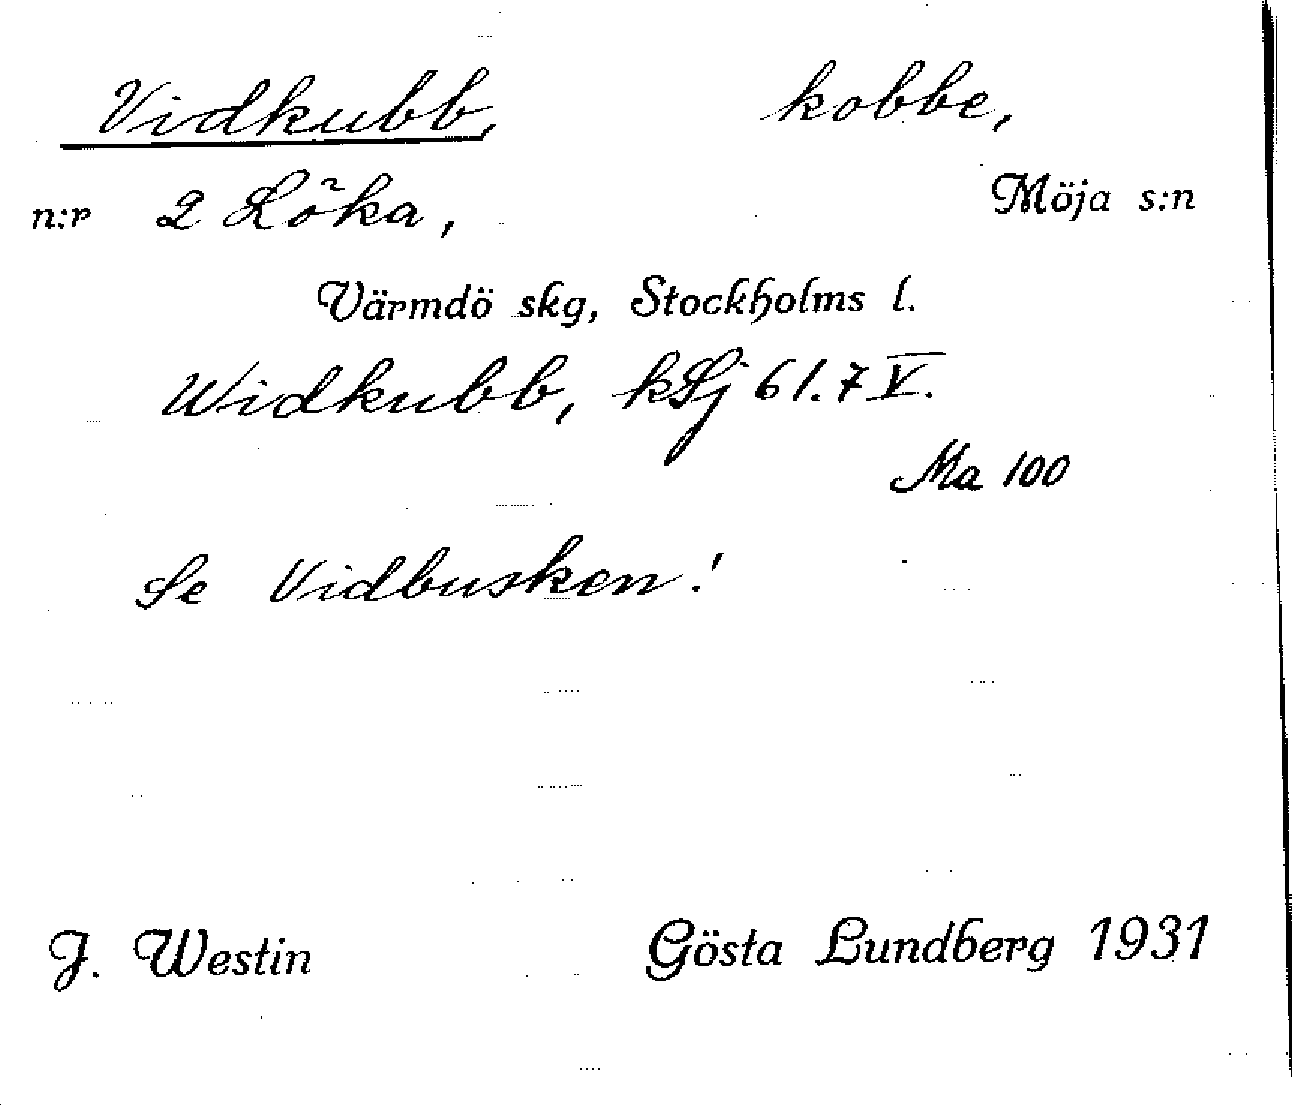 Vidkubb, kobbe,
n:r 2 Löka, Möja s:n
Värmdö skg, Stockholms l.
Widkubb, kSj 61.7 V.
Ma 100
Se Vidbusken!
J. Westin Gösta Lundberg 1931